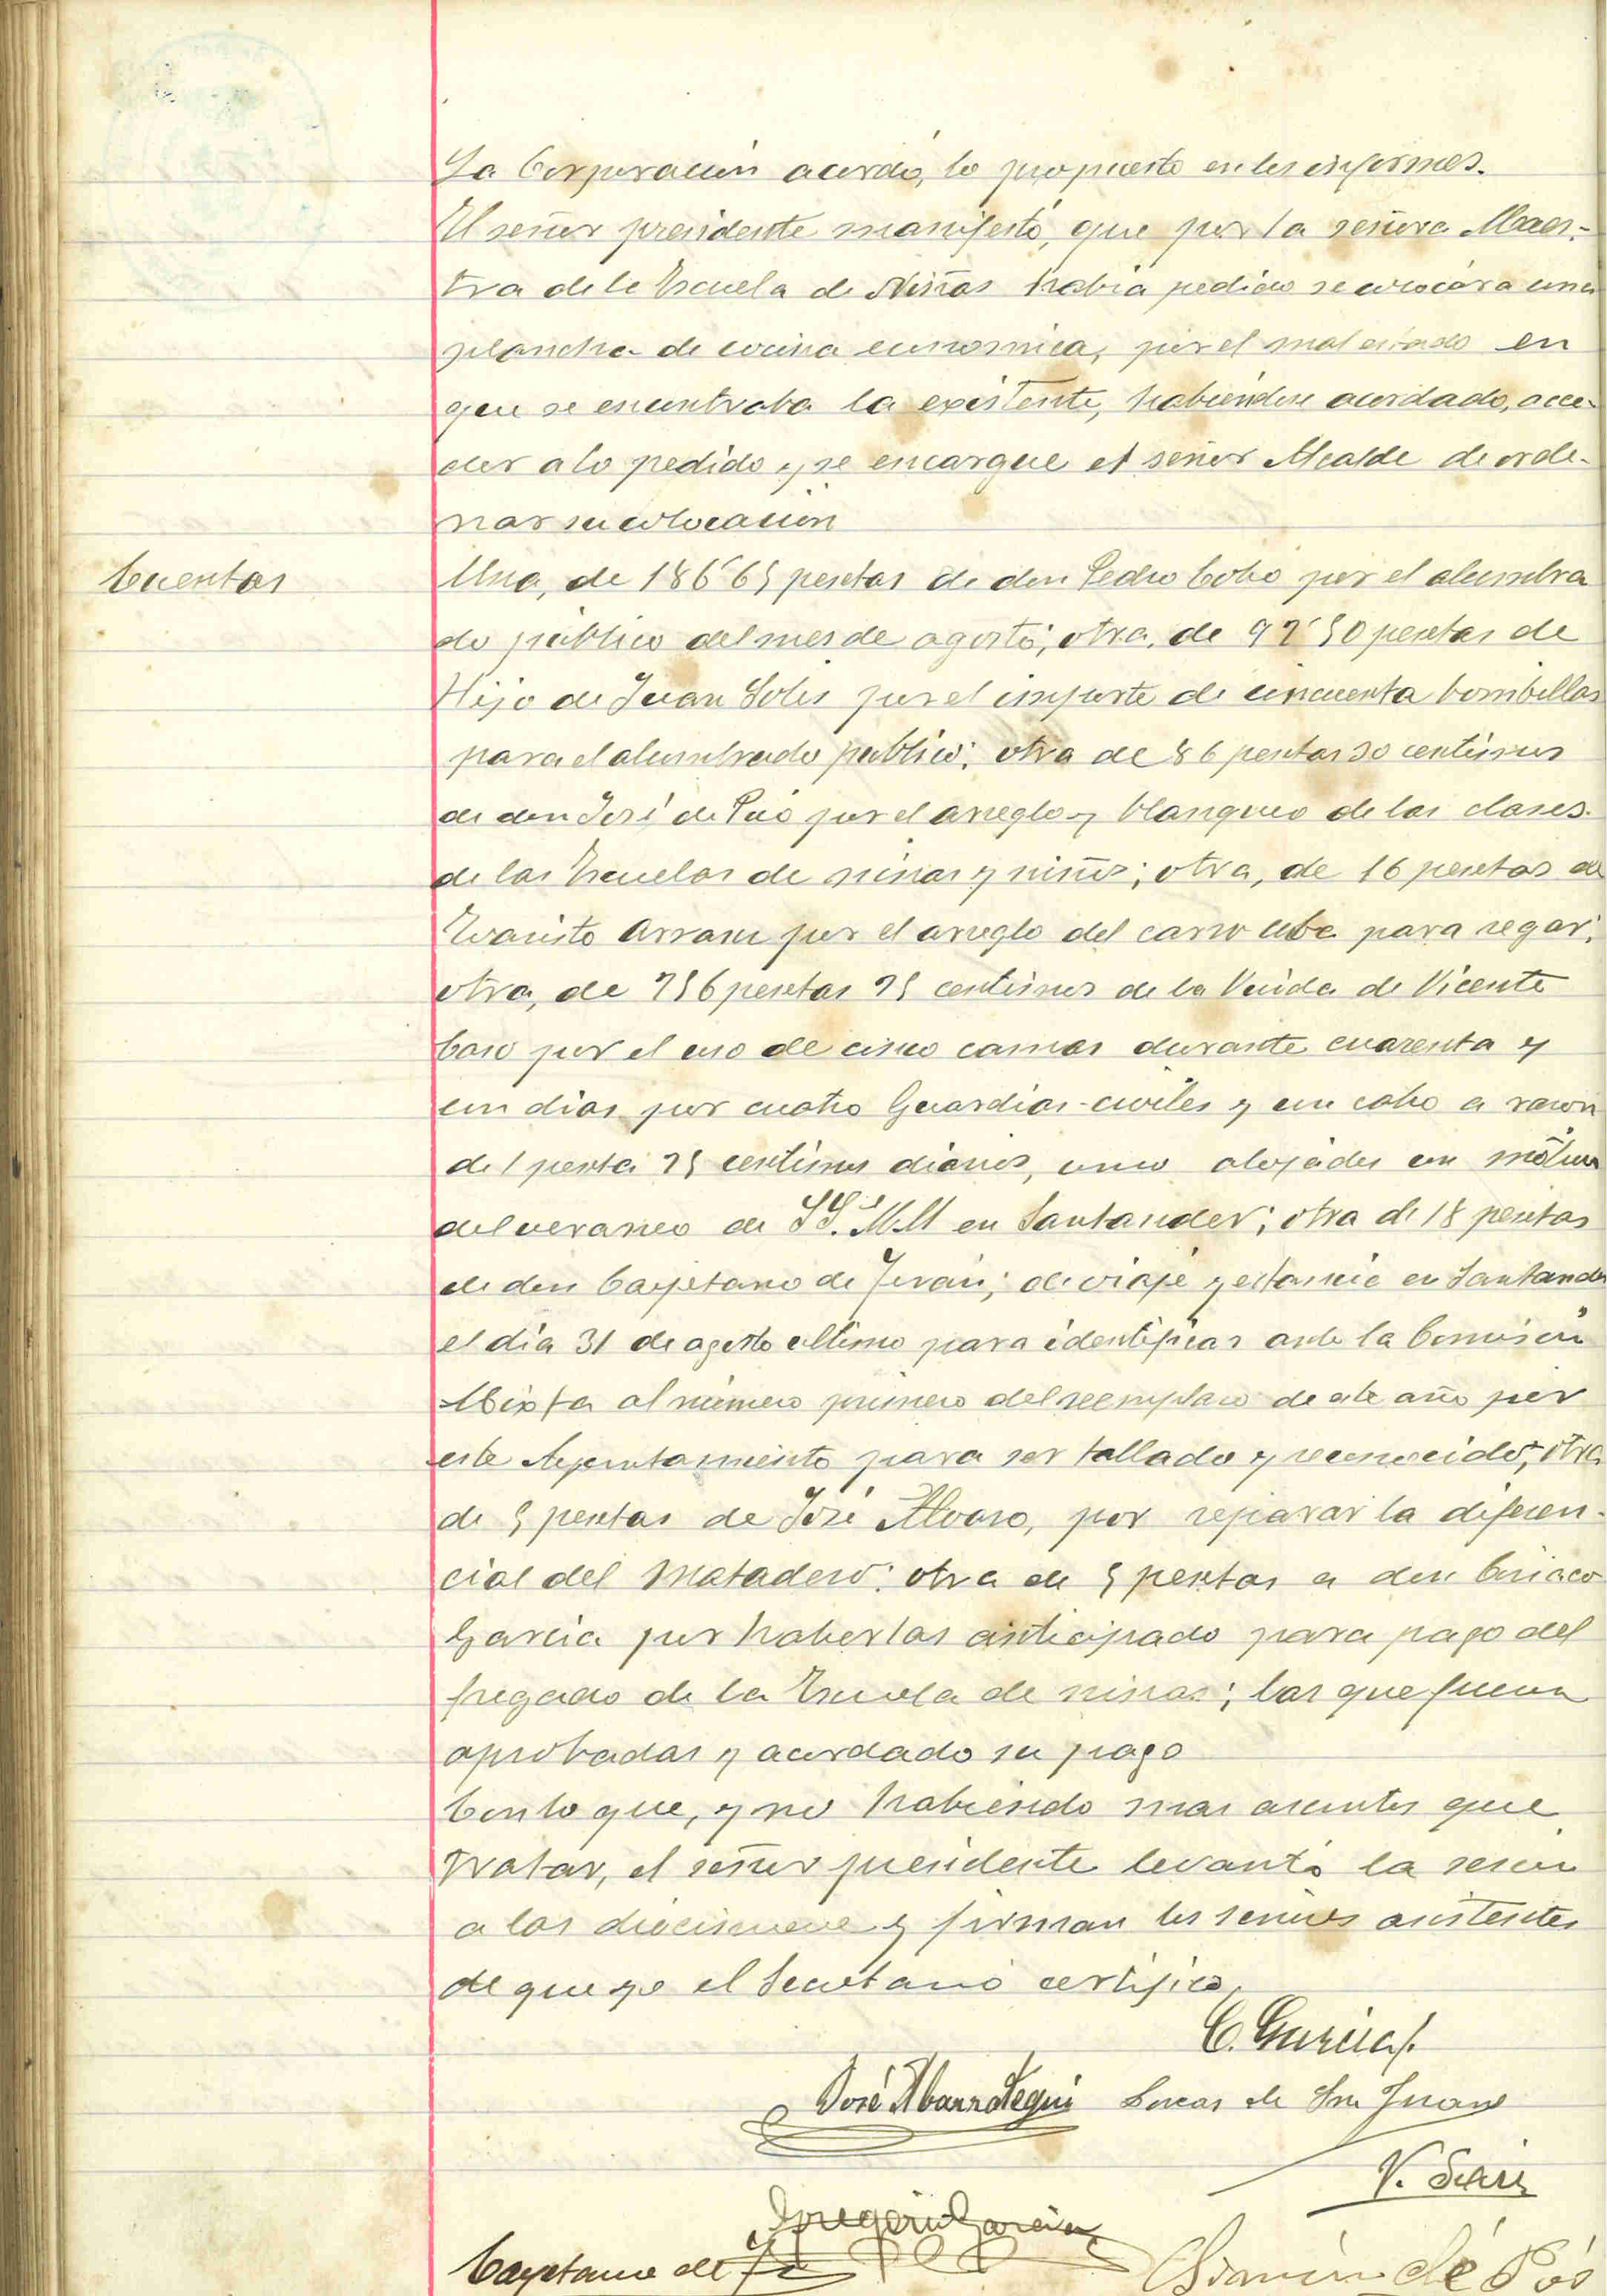 La Corporación acordó, lo propuesto en los informes.
El señor presidente manifestó, que por la señora Maes-
tra de la Escuela de Niñas había pedido se colocára una
plancha de cocina economica, por el mal estado en
que se encontraba la existente, habiendose acordado, acce-
der a lo pedido y se encargue el señor Alcalde de orde-
nar su colocación
Cuentas
Una, de 186'65 pesetas de don Pedro Cobo por el alumbra
do público del mes de agosto; otra, de 92'50 pesetas de
Hijo de Juan Solis por el importe de cincuenta bombillas
para el alumbrado publico; otra de 86 pesetas 30 centimos
de don José de Pio por el arreglo y blanqueo de las clases
de las Escuelas de niñas y niños; otra, de 16 pesetas de
Evaristo por el arreglo del carro cuba para regar;
otra, de 256 pesetas 25 centimos de la Viuda de Vicente
Caso por el uso de cinco camas durante cuarenta y
un dias por cuatro Guardias-civiles y un cabo a razon
de 1 peseta 25 centimos diarios, alojados en
del veraneo de SS. MM en Santander; otra de 18 pesetas
de don Cayetano de; de viaje y estancia en Santander
el día 31 de agosto ultimo para identificar ante la Comisión
Mixta al número primero del reemplazo de este año por
este Ayuntamiento para ser tallado y reconocido; otra
de 5 pesetas de José Alvaro, por reparar la diferen-
cial del Matadero; otra de 5 pesetas a don Ciriaco
Garcia por haberlas anticipado para pago del
fregado de la Escuela de niñas; las que fueron
aprobadas y acordado su pago
Con lo que, y no habiendo mas asuntos que
tratar, el señor presidente levantó la sesion
a las diecinueve y firman los señores asistentes
de que yo el Secretario certifico,
C. Garcia
José Abarrategui Lucas de San Juan
V.
Gregorio Garcia
Cayetano de